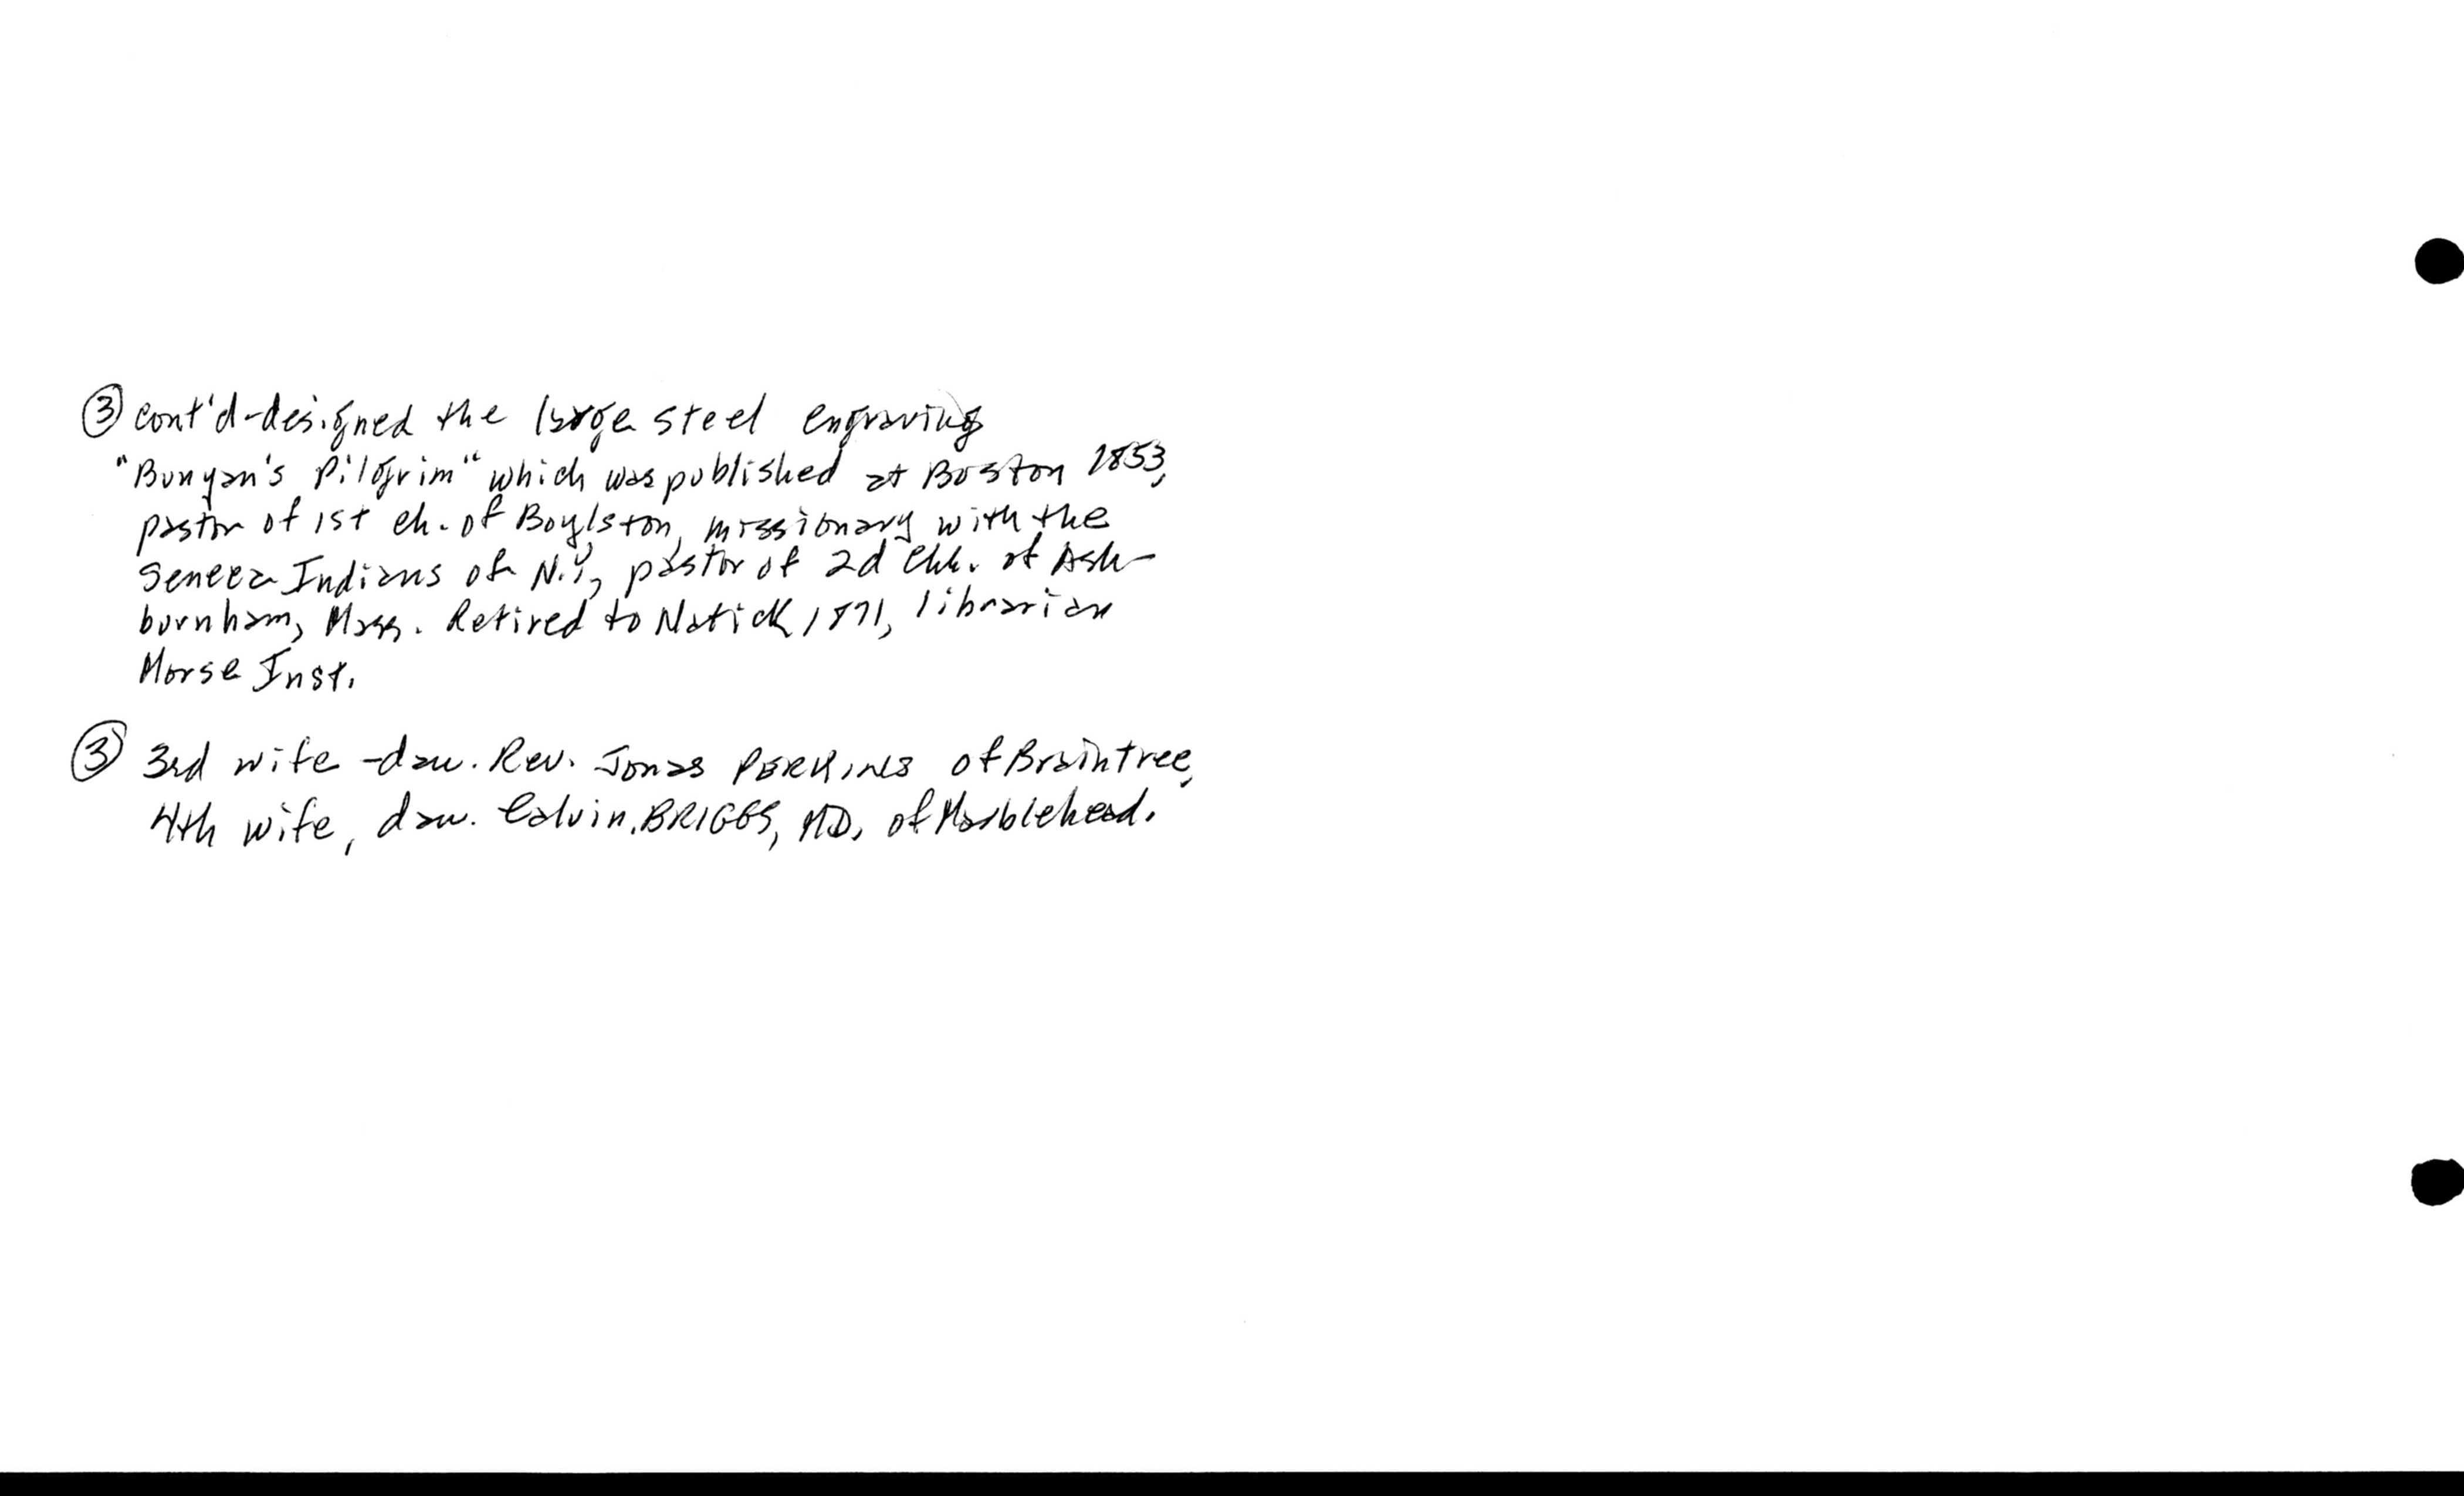 ③ cont'd-designed the large steel engraving
"Bunyan's Pilgrim" which was published at Boston 1853,
pastor of 1st ch. of Boylston, missionary with the
Seneca Indians of N.Y., pastor of 2d Chh. of Ash-
burnham, Mass. Retired to Natick 1871, librarian
Morse Inst.
③ 3rd wife -dau. Rev. Jonas PERKINS of Braintree,
4th wife, dau. Calvin. BRIGGS, MD, of Marblehead.